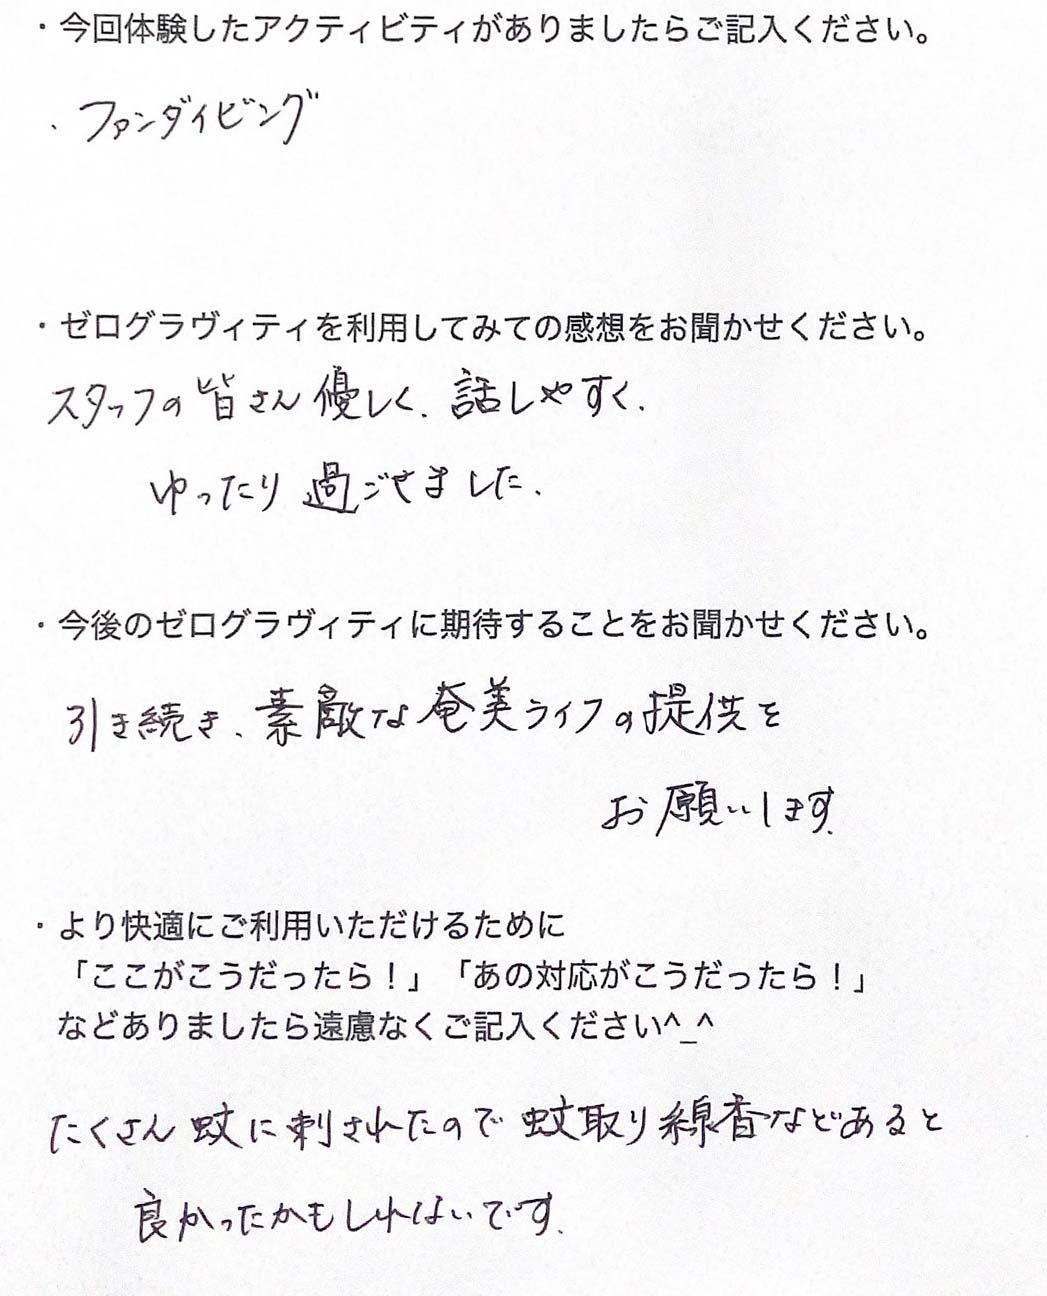 ・今回体験したアクティビティがありましたらご記入ください。
・ファンダイビング
・ゼログラヴィティを利用してみての感想をお聞かせください。
スタッフの皆さん優しく、話しやすく、
ゆったり過ごせました。
・今後のゼログラヴィティに期待することをお聞かせください。
引き続き、素敵な奄美ライフの提供を
お願いします。
・より快適にご利用いただけるために
「ここがこうだったら！」「あの対応がこうだったら！」
などありましたら遠慮なくご記入ください^_^
たくさん蚊に刺されたので蚊取り線香などあると
良かったかもしれないです。